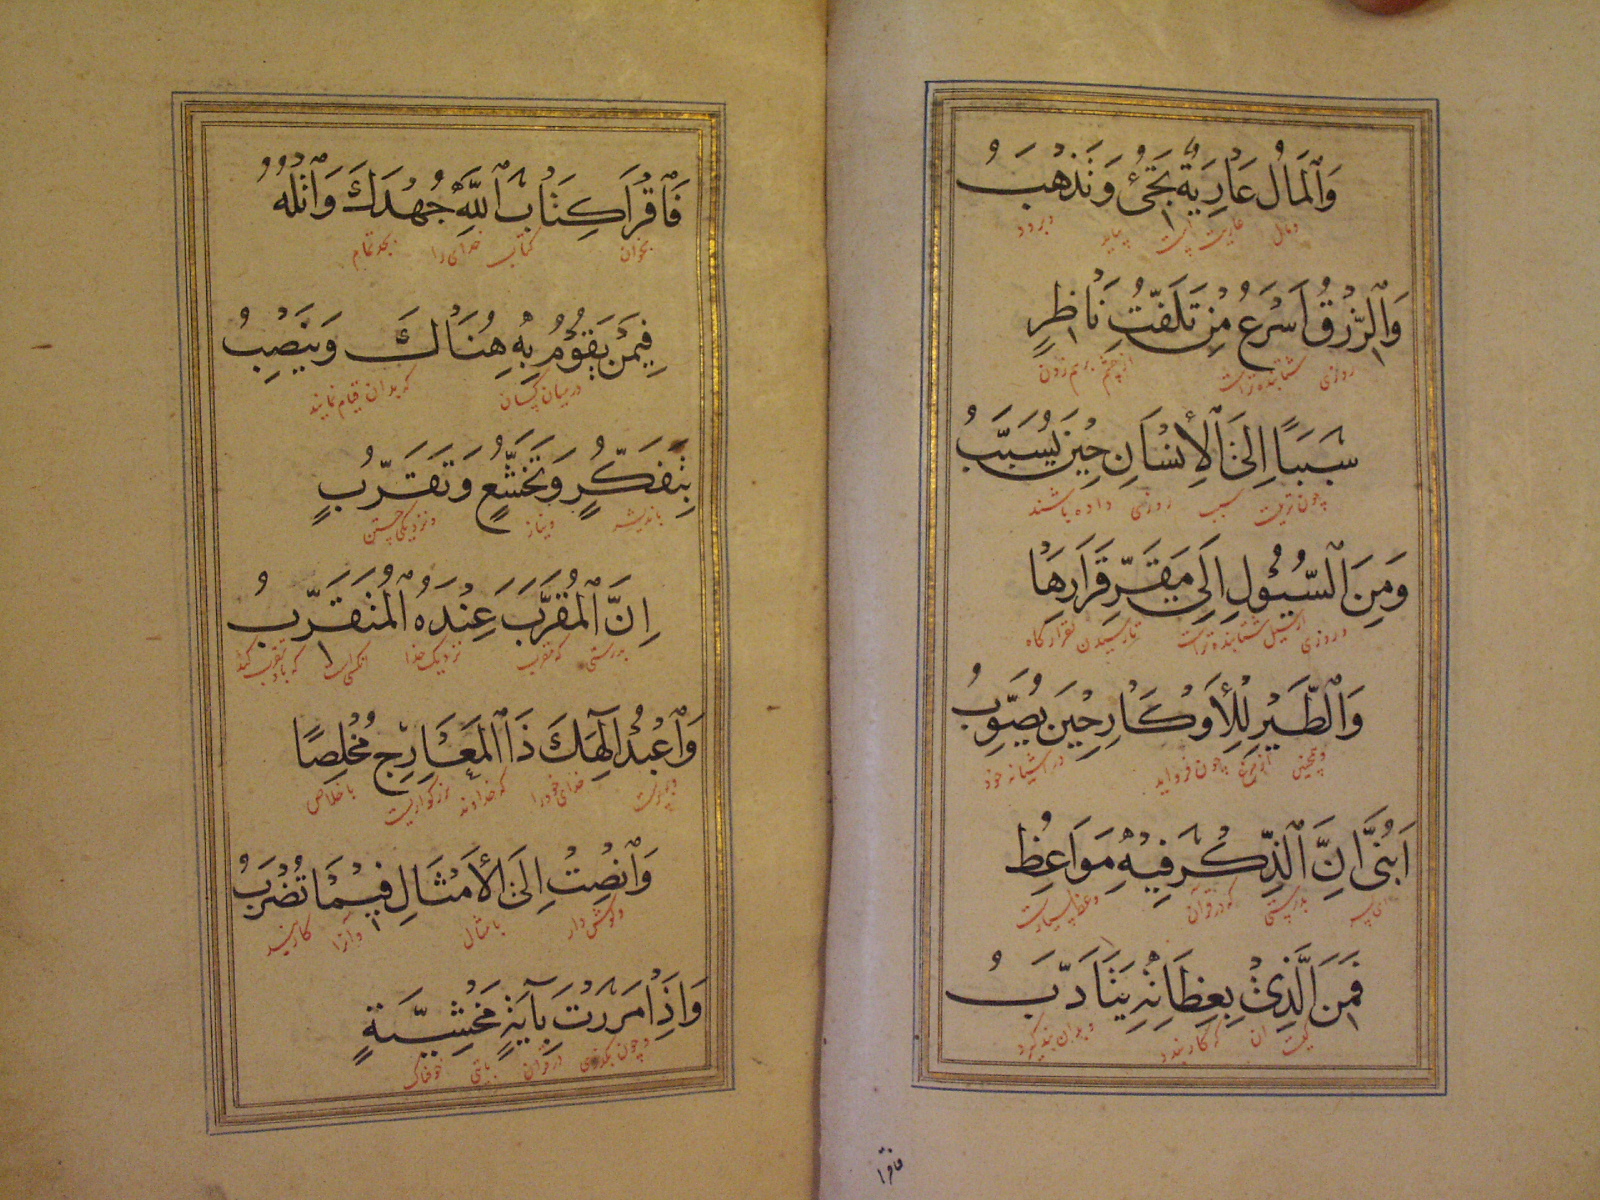 وَٱلْمَالُ عَارِيَةٌ تَجَىُٔ وَتَذْهَبُ
ومال عاریت است بیاید وبرود
وَٱلرِّزْقُ اَسْرَعُ مِنْ تَلَفُّتِ نَاظِرٍ
روزی شتابنده تراست ازچشم برهم زدن
سَبَبًا اِلَى ٱلْأِنْسَانِ حِيْنَ يُسَبَّبُ
چون ترتیب سبب روزی داده باشند
وَمِنَ ٱلسُّيُوْلِ اِلَى مَقَرِّ قَرَارِهَا
وروزی ازسیل شتابنده تراست تارسیدن بقرارگاه
وَٱلطَّيْرِ لِلْأَوْكَارِ حِيْنَ يُصَوِّبُ
وهمچنین ازمرغ چون فروداید در آشیانه خود
اَبُنَىَّ اِنَّ ٱلذِّكْرَ فِيْهِ مَوَاعِظٌ
ای پسر بدرستی که درقرآن وعظ بسیاراست
فَمَنَ ٱلَّذِىْ بِعِظَاتِهِ يَتَأَدَّبُ
کیست ان که کاربندد وبدان پندگیرد
فاقرا
فَاَقْرَأ كِتَابَ ٱللّٰهِ جُهْدَكَ وَٱتْلُهُ
بخوان کتاب خدای را بجهد تمام
فِيْمَنْ يَقُوْمُ بِهِ هُنَاكَ وَيَنْصِبُ
درمیان کسان که بدان قیام نمایند
بِتَفَكُّرٍ وَتَخَشُّعٍ وَتَقَرُّبٍ
باندیشه ونیاز ونزدیکی جستن
اِنَّ ٱلْمُقَرَّبَ عِنْدَهُ ٱلْمُتَقَرِّبُ
بدرستی که مقرب نزدیک خدا انکس است که باو تقرب کند
وَٱعْبُدْ اِلٰهَكَ ذَا ٱلْمَعَارِجِ مُخْلِصًا
وبپرست خدای خودرا که خداوند بزرگواریست باخلاص
وَٱنْصِتْ اِلَى ٱلْأَمْثَالِ فِيْمَا تُضْرَبُ
وگوش دار بامثال وآنرا کاربند
وَاِذَا مَرَرْتَ بِآيَةٍ مَخْشِيَّةٍ
وچون بگذری ازقرآن بآیتی خوفناک